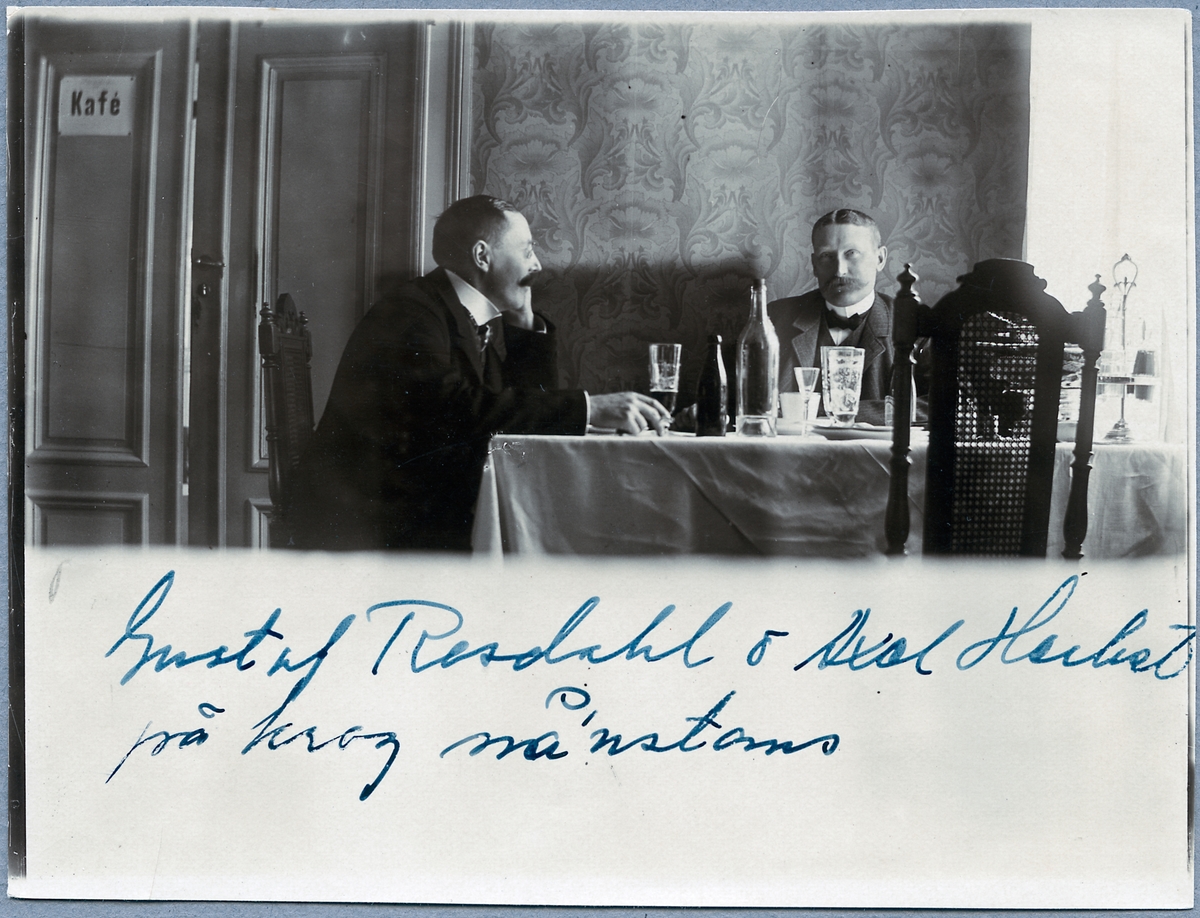 Kafé
Gustaf Rosdahl o Axel Herbst
på krog nånstans